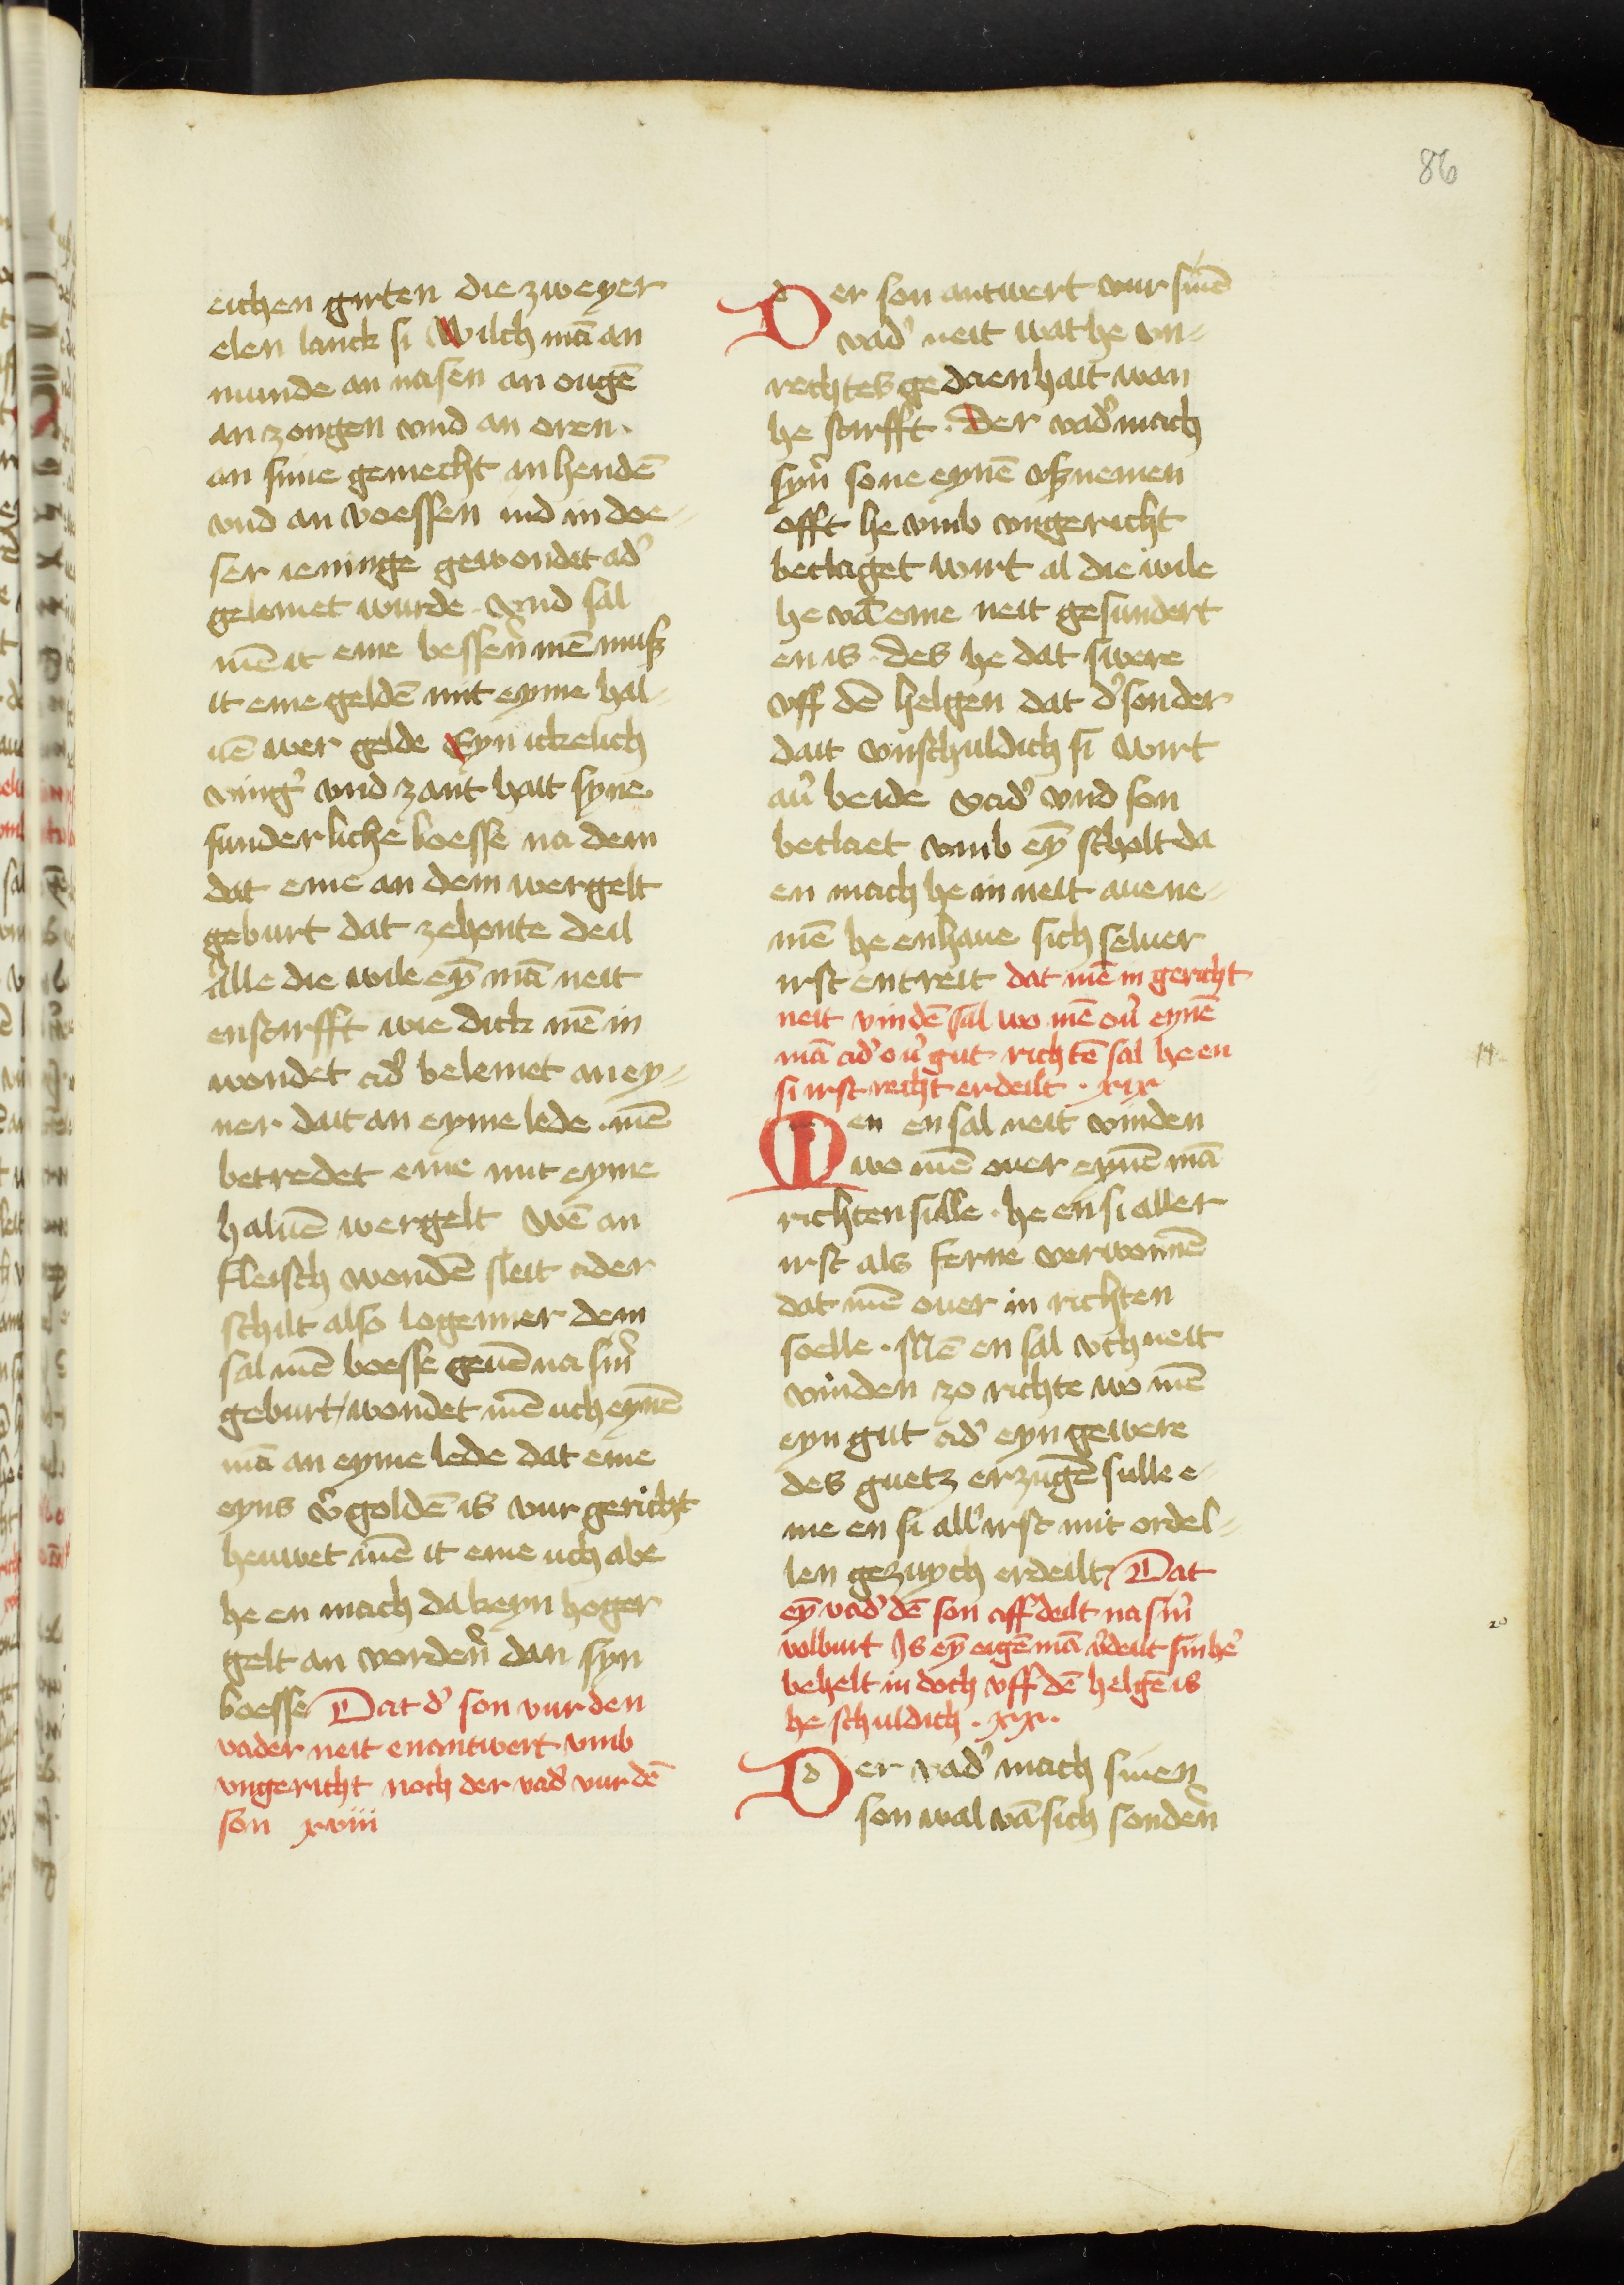 86
eichen girten die zweyer
elen lanck si Wilch mā an
munde an nasen an ougē
an zongen vnd an oren.
an sime gemecht in hendē
vnd an voessen ind in doe-
ser ieninge gewondet ad᾽
gelemet wurde. vnd sal
mē it eme bessern᾽ mē musz
it eme geldē mit eyme hal-
uē wer gelde Eyn ickelich
ving᾽ vnd zant hait syne
sunderliche boesse na dem
dat eme an dem wergelt
geburt dat zehente deil
Alle die wile eyn̄ mā neit
enstirfft wie dick mē in
wondet ad᾽ belemet an ey-
ner dait an eyme lede. mē
betredet eme mit eyme
haluē wergelt Wē an
fleisch wondē sleit ader
schilt also logenner dem
sal mē boesse geuē na sin᾽
geburt / wondet mē uch eynē
mā an eyme lede dat eme
eyns v᾽goldē is vur gericht
heuwet mē it eme uch abe
he en mach da keyn hoger
gelt an vordern᾽ dan syn
boesse Dat d᾽ son vur den
vader neit enantwert vmb
vngericht noch der vad᾽ vur dē
son xviii
Der son antwert vur sinē
vad᾽ neit wat he vn-
rechtes gedaen hait wan
he stirfft. Der vad᾽ mach
syn᾽ sone eynē vsznemen
offt he vmb vngericht
beclaget wirt al die wile
he vā eme neit gesundert
en is. des he dat swere
vff dē helgen dat d᾽ son der
dait vnschuldich si wirt
au᾽ beide vad᾽ vnd son
beclaet vmb eyn̄ scholt da
en mach he in neit aue ne-
mē he enhaue sich seluer
irst entreit dat mē in gericht
neit vindē sal wo mē ou᾽ eynē
mā ad᾽ ou᾽ gut richtē sal he en
si irst recht erdeilt. xix
Men en sal neit vinden
wo mē ouer eynē mā
richten sulle. he en si aller
irst als ferne verwonnē
dat mē ouer in richten
soelle. Mē en sal vch neit
vinden zo richte wo mē
eyn gut ad᾽ eyn gewere
des guetz erzugē sulle e-
me en si all᾽irst mit ordel-
len gezuych erdeilt / Dat
eyn̄ vad᾽ dē son aff deilt na sin᾽
volburt Is eyn̄ eigē mā v᾽deilt sin he᾽
behelt in doch vff dē helgē is
he schuldich. xix.
Der vad᾽ mach sinen
son wal vā sich sondern᾽